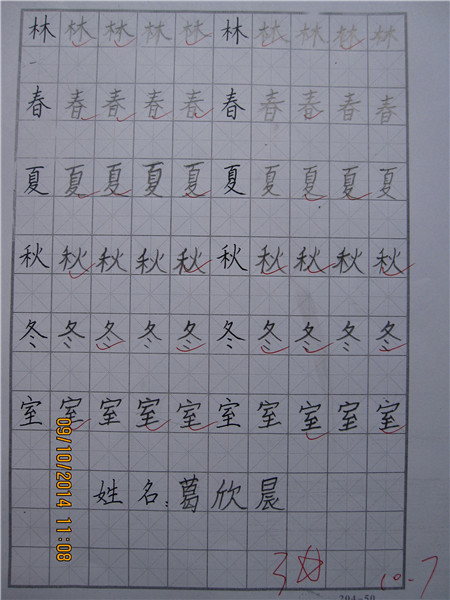 林林林林林林林林林林
春春春春春春春春春春
夏夏夏夏夏夏夏夏夏夏
秋秋秋秋秋秋秋秋秋秋
冬冬冬冬冬冬冬冬冬冬
室室室室室室室室室室
姓名:葛欣晨
3☆
10-7
09/10/2014 11:08